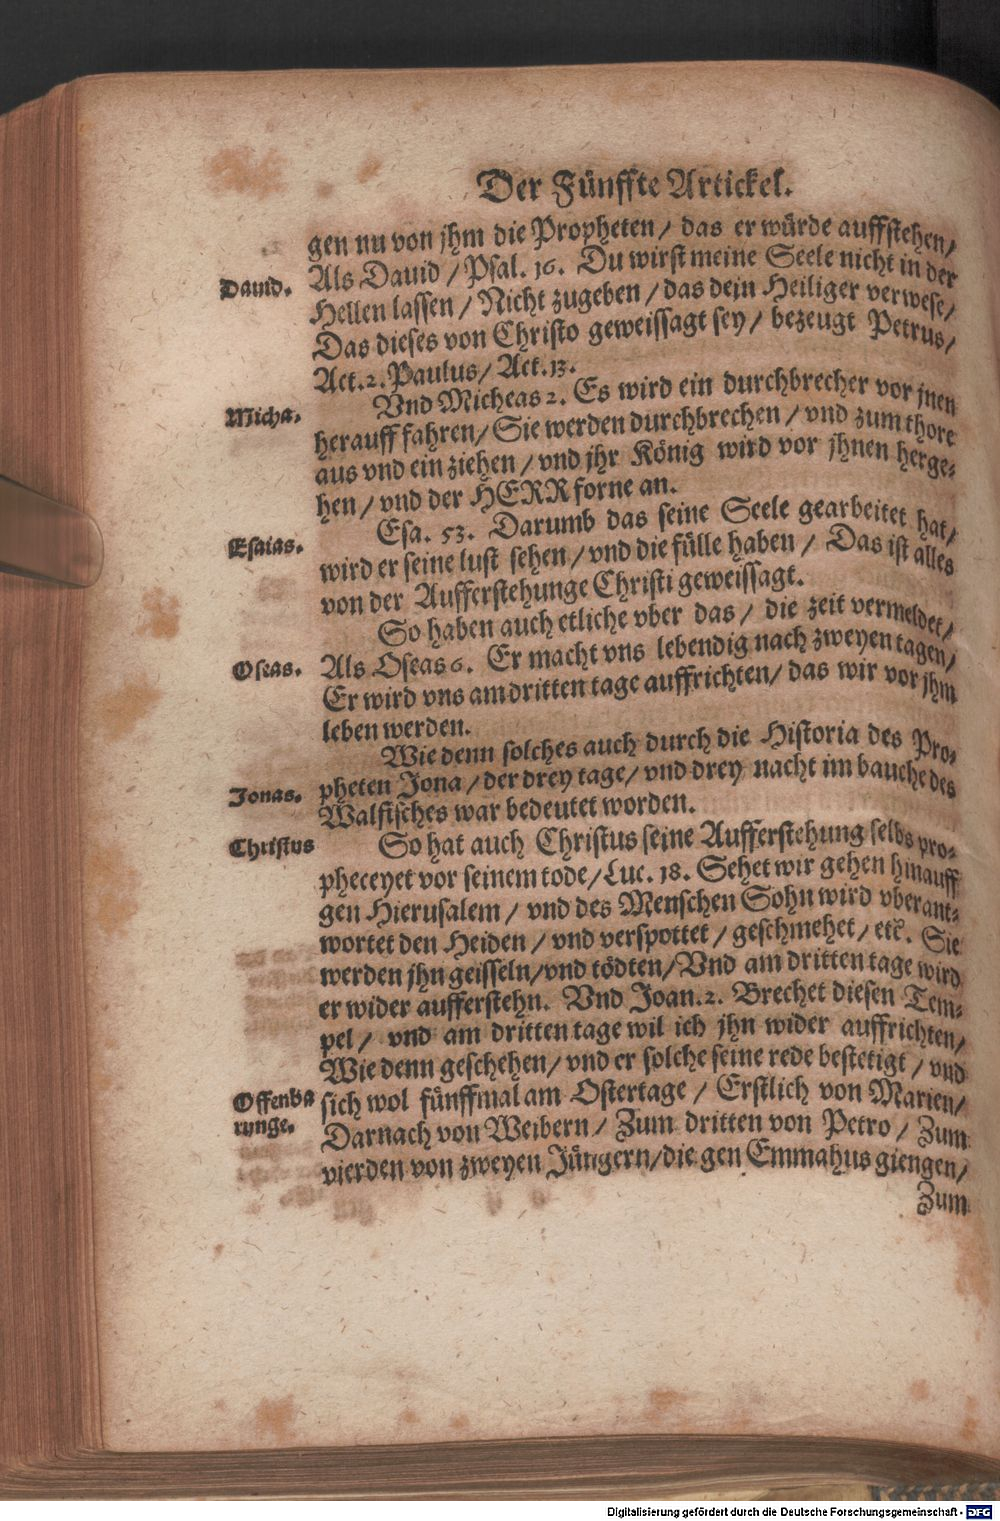 Der Fünffte Artickel.
gen nu von jhm die Propheten / das er würde auffstehen /
Dauid. Als Dauid / Psal. 16. Du wirst meine Seele nicht in der
Hellen lassen / Nicht zugeben / das dein Heiliger verwese /
Das dieses von Christo geweissagt sey / bezeugt Petrus /
Act. 2. Paulus / Act. 13.
Micha. Vnd Micheas 2. Es wird ein durchbrecher vor jnen
herauff fahren / Sie werden durchbrechen / vnd zum thore
aus vnd ein ziehen / vnd jhr König wird vor jhnen herge-
hen / vnd der HERR forne an.
Esaias. Esa. 53. Darumb das seine Seele gearbeitet hat /
wird er seine lust sehen / vnd die fülle haben / Das ist alles
von der Aufferstehunge Christi geweissagt.
So haben auch etliche vber das / die zeit vermeldet /
Oseas. Als Oseas 6. Er macht vns lebendig nach zweyen tagen /
Er wird vns am dritten tage auffrichten / das wir vor jhm
leben werden.
Wie denn solches auch durch die Historia des Pro-
Jonas. pheten Jona / der drey tage / vnd drey nacht im bauche des
Walfisches war bedeutet worden.
Christus So hat auch Christus seine Aufferstehung selbs pro-
pheceyet vor seinem tode / Luc. 18. Sehet wir gehen hinauff
gen Hierusalem / vnd des Menschen Sohn wird vberant-
wortet den Heiden / vnd verspottet / geschmehet / etc. Sie
werden jhn geisseln / vnd tödten / Vnd am dritten tage wird
er wider aufferstehn. Vnd Joan. 2. Brechet diesen Tem-
pel / vnd am dritten tage wil ich jhn wider auffrichten /
Wie denn geschehen / vnd er solche seine rede bestetigt / vnd
Offenba sich wol fünffmal am Ostertage / Erstlich von Marien /
runge. Darnach von Weibern / Zum dritten von Petro / Zum
vierden von zweyen Jüngern / die gen Emmahus giengen /
Zum
Digitalisierung gefördert durch die Deutsche Forschungsgemeinschaft - DFG